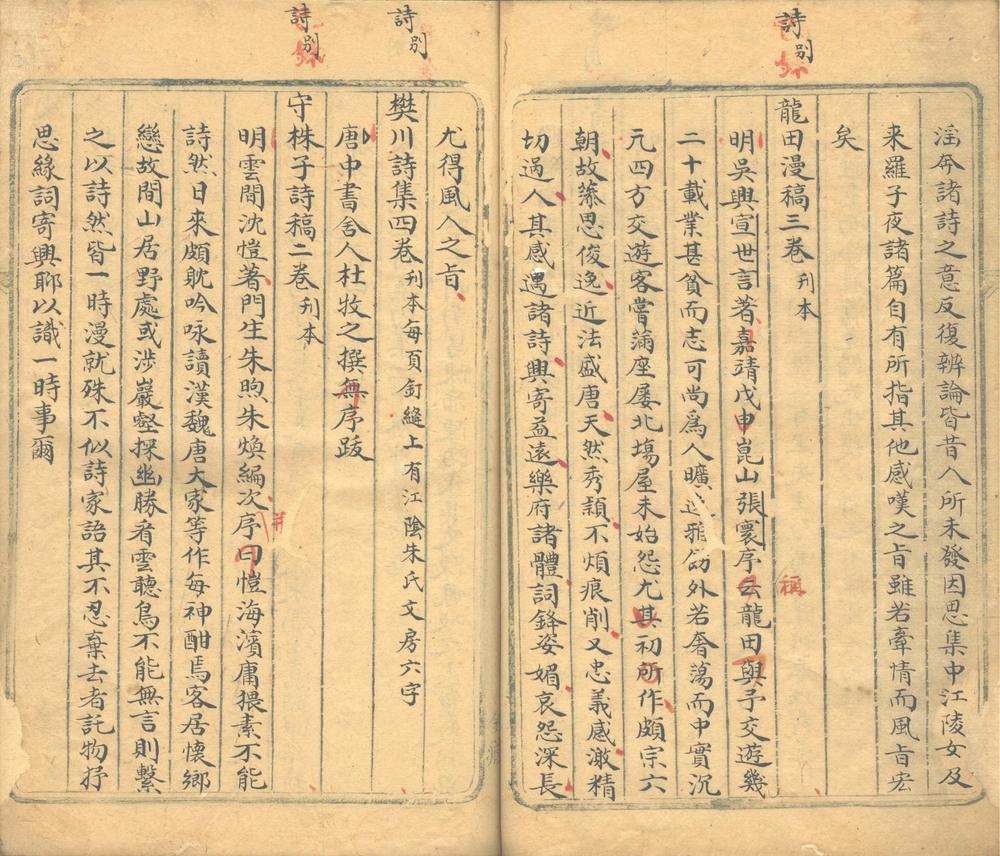 淫奔諸詩之意反復辨論皆昔人所未發因思集中江陵女及
来羅子夜諸篇自有所指其他感嘆之旨雖若牽情而風旨宏
矣
詩别
龍田漫稿三卷 刊本
明吳興宣世言著嘉靖戊申崑山張寰序云龍田與予交遊幾
稱
二十載業甚貧而志可尚爲人曠达雅飭外若奢蕩而中實沉
冗四方交遊客嘗滿座屡北塲屋未始怨尤其初所作頗宗六
朝故藻思俊逸近法盛唐天然秀頴不煩痕削又忠義感激精
切過人其感遇諸詩興寄益遠樂府諸體詞鋒姿媚哀怨深長
尤得風人之旨
詩别
樊川詩集四卷 刊本每頁釘縫上有江陰朱氏文房六字
唐中書舍人杜牧之撰無序跋
詩别
守株子詩稿二卷 刊本
明雲間沈愷著門生朱煦朱煥編次序曰愷海濱庸猥素不能
并
詩然日来頗躭吟咏讀漢魏唐大家等作每神酣焉客居懷鄉
戀故間山居野處或涉巖壑探幽勝看雲聽鳥不能無言則繫
之以詩然皆一時漫就殊不似詩家語其不忍棄去者託物抒
思緣詞寄興聊以識一時事爾